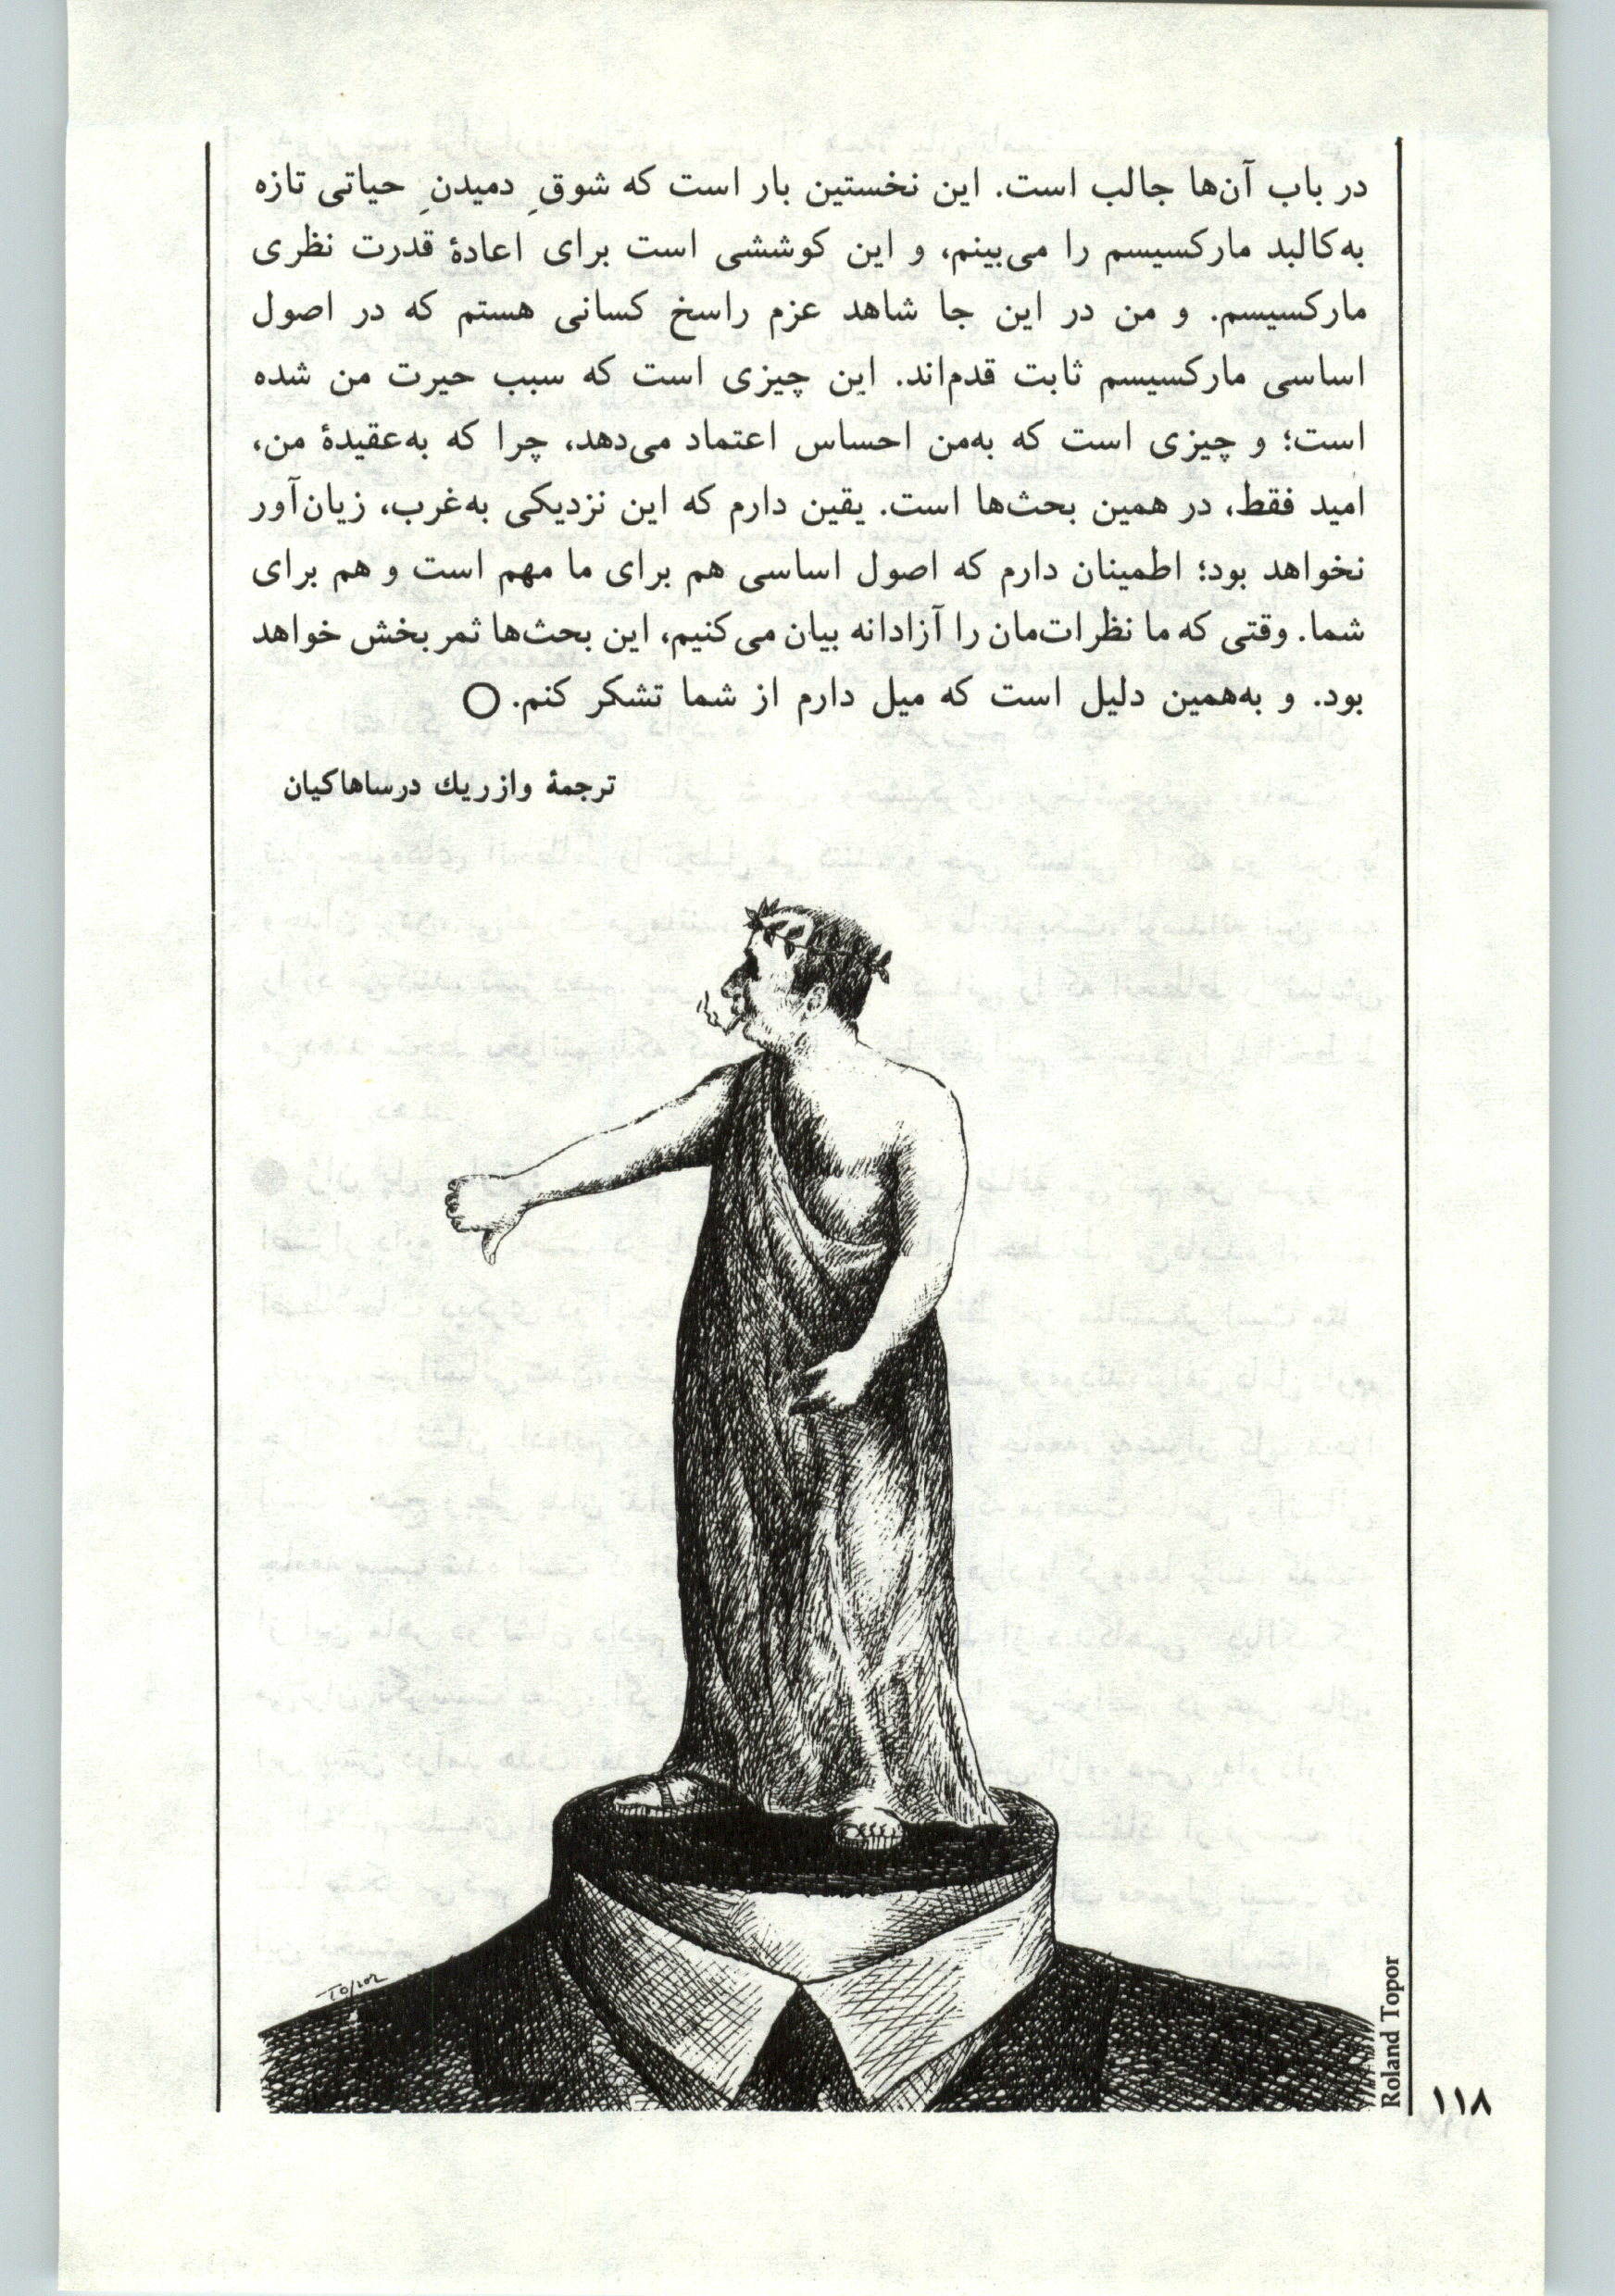 در باب آن‌ها جالب است. این نخستین بار است که شوقِ دمیدنِ حیاتی تازه
به‌کالبد مارکسیسم را می‌بینم، و این کوششی است برای اعادهٔ قدرت نظری
مارکسیسم. و من در این جا شاهد عزم راسخ کسانی هستم که در اصول
اساسی مارکسیسم ثابت قدم‌اند. این چیزی است که سبب حیرت من شده
است؛ و چیزی است که به‌من احساس اعتماد می‌دهد، چرا که به‌عقیدهٔ من،
امید فقط، در همین بحث‌ها است. یقین دارم که این نزدیکی به‌غرب، زیان‌آور
نخواهد بود؛ اطمینان دارم که اصول اساسی هم برای ما مهم است و هم برای
شما. وقتی که ما نظرات‌مان را آزادانه بیان می‌کنیم، این بحث‌ها ثمربخش خواهد
بود. و به‌همین دلیل است که میل دارم از شما تشکر کنم. ○
ترجمهٔ وازریك درساهاکیان
Roland Topor
۱۱۸